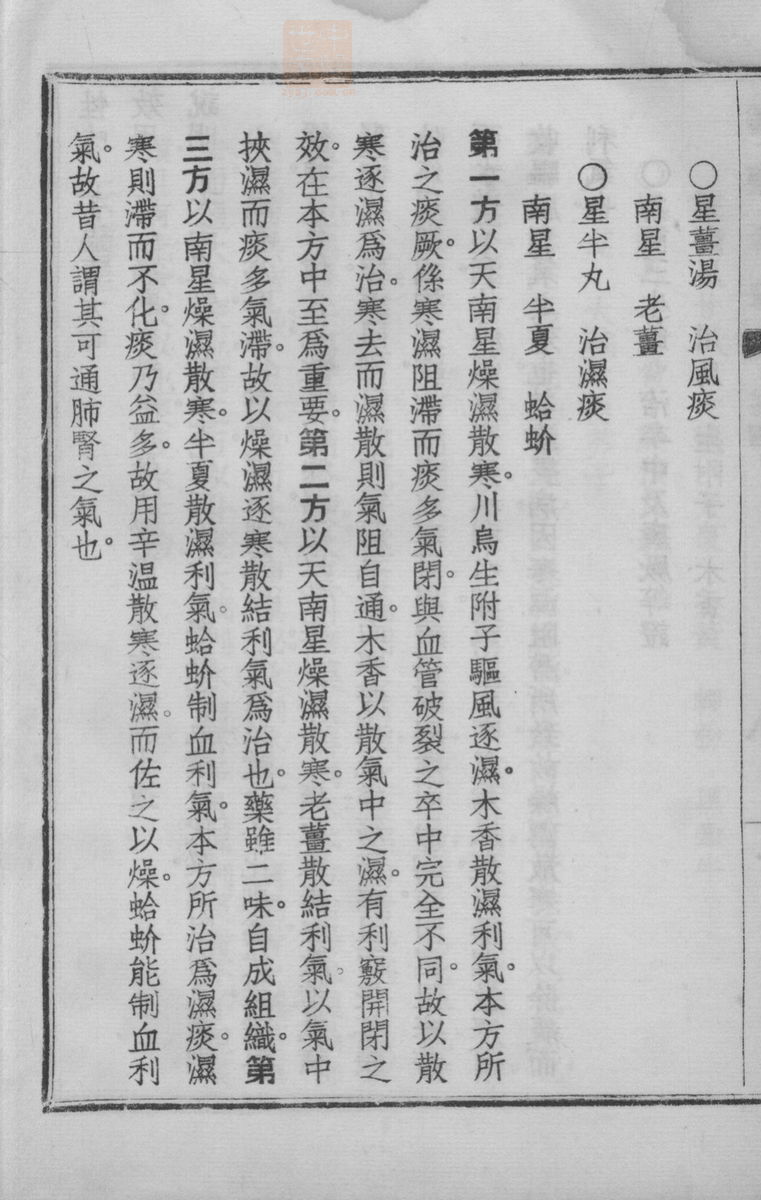 ○星薑湯　治風痰
南星　老薑
○星半丸　治濕痰
南星　半夏　蛤蚧
第一方以天南星燥濕散寒。川烏生附子驅風逐濕。木香散濕利氣。本方所
治之痰厥。係寒濕阻滯而痰多氣閉。與血管破裂之卒中完全不同。故以散
寒逐濕爲治。寒去而濕散則氣阻自通。木香以散氣中之濕。有利竅開閉之
效。在本方中至爲重要。第二方以天南星燥濕散寒。老薑散結利氣。以氣中
挾濕而痰多氣滯。故以燥濕逐寒散結利氣爲治也。藥雖二味。自成組織。第
三方以南星燥濕散寒。半夏散濕利氣。蛤蚧制血利氣。本方所治爲濕痰。濕
寒則滯而不化。痰乃益多。故用辛温散寒逐濕。而佐之以燥。蛤蚧能制血利
氣。故昔人謂其可通肺腎之氣也。